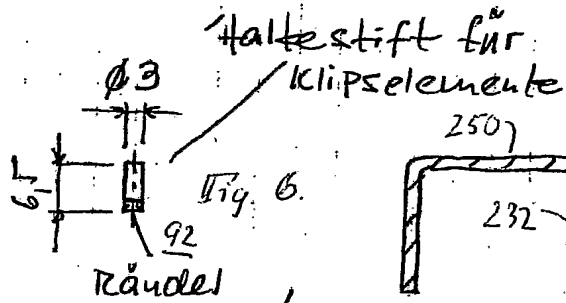 Haltestift für
Klipselemente
ø3
6,5
Fig. 6.
92
Rändel
250
232